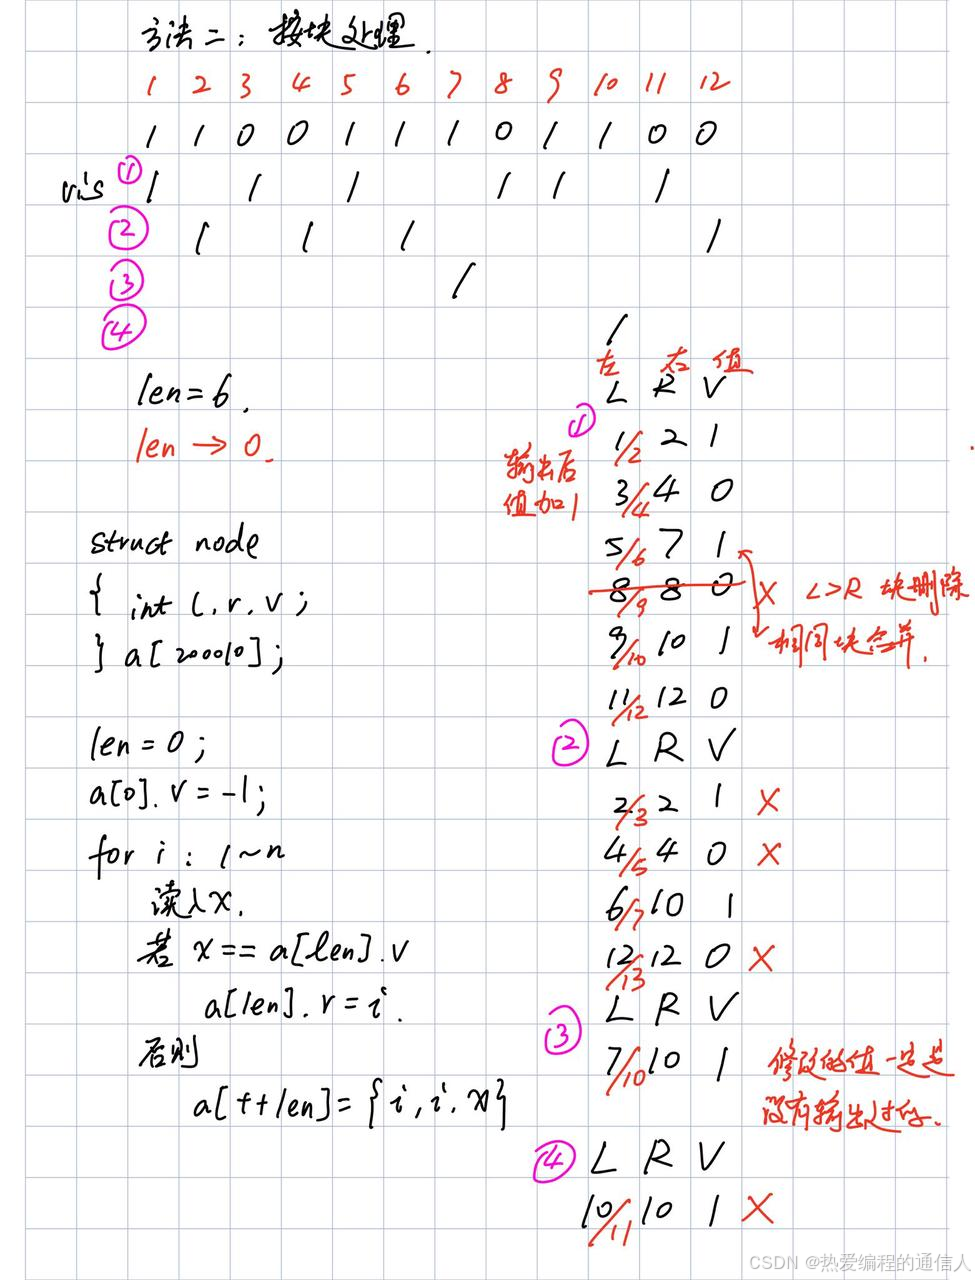 方法二：按块处理.
1 2 3 4 5 6 7 8 9 10 11 12
1 1 0 0 1 1 1 0 1 1 0 0
vis ① 1 1 1 1 1 1
② 1 1 1 1
③ 1
④ 1
len=6.
len → 0.
struct node
{ int l,r,v;
} a[200010];
len = 0;
a[0].v = -1;
for i: 1~n
读入x.
若 x == a[len].v
a[len].r = i.
否则
a[++len]={i,i,x}
左 右 值
① L R V
输出后
值加1
1/2 2 1
3/4 4 0
5/6 7 1
8/9 8 0 X L>R 块删除
相同块合并.
9/10 10 1
11/12 12 0
② L R V
2/3 2 1 X
4/5 4 0 X
6/7 10 1
12/13 12 0 X
③ L R V
7/10 10 1
修改的值一定是
没有输出过的.
④ L R V
10/11 10 1 X
CSDN @热爱编程的通信人